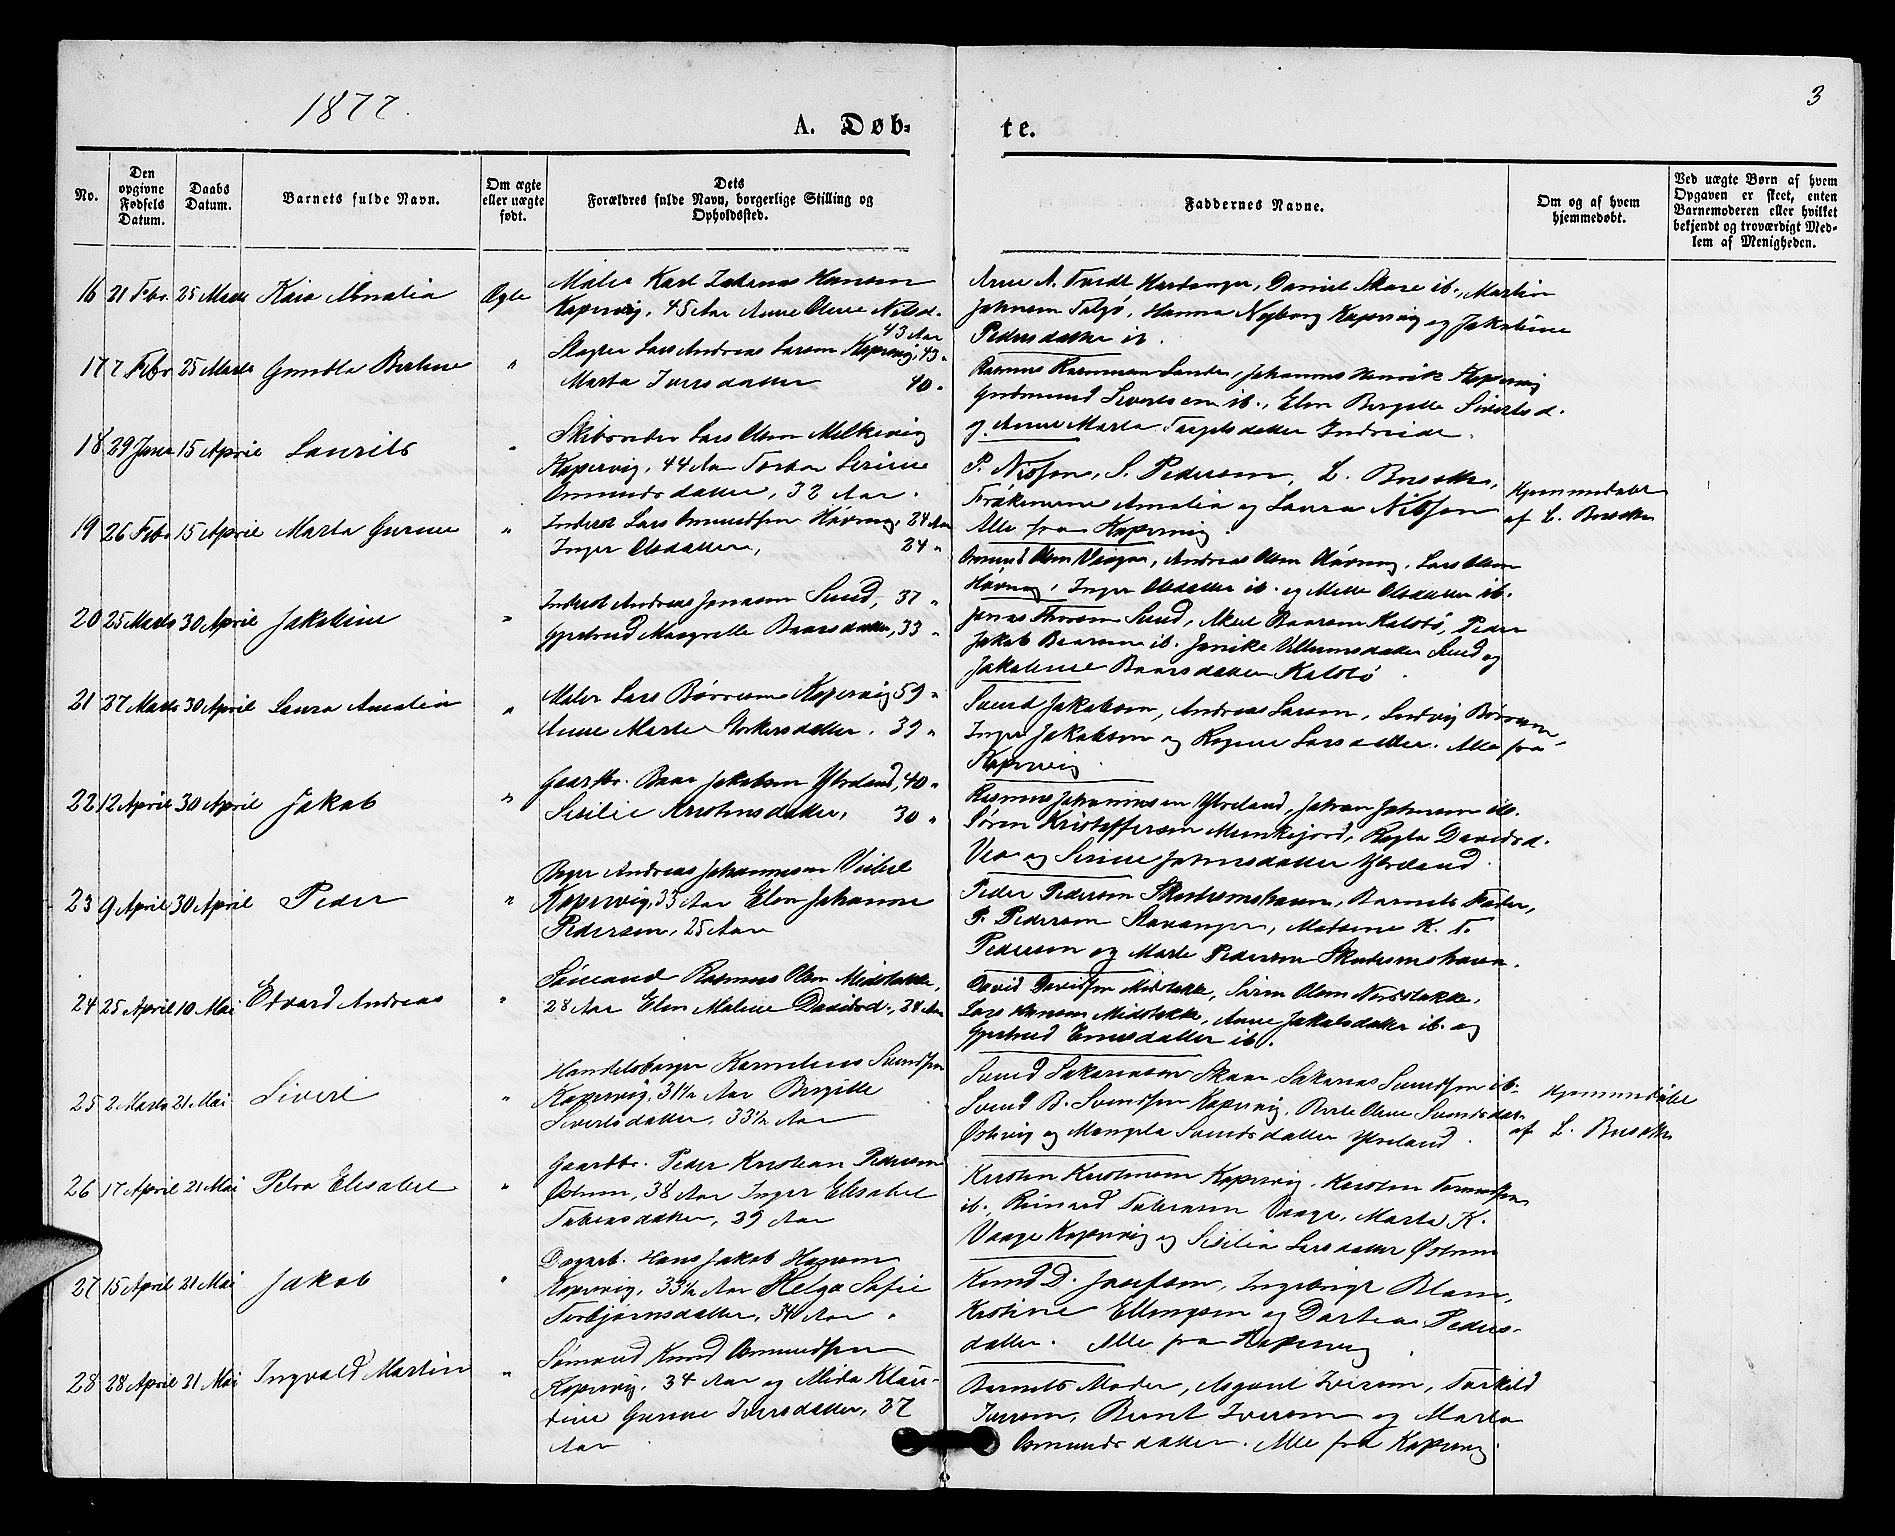 1877.
3
A. Døb-
te.
No.
Den opgivne Fødsels Datum.
Daabs Datum.
Barnets fulde Navn.
Om ægte eller uægte født.
Dets Forældres fulde Navn, borgerlige Stilling og Opholdssted.
Faddernes Navne.
Om og af hvem hjemmedøbt.
Ved uægte Børn af hvem Opgaven er skeet, enten Barnemoderen eller hvilket bekjendt og troværdigt Medlem af Menigheden.
16 21 Febr. 25 Marts Amalia Ægte
Maler Karl Hansen
Kopervig, 45 Aar Anne Oline Nilsd.
43 Aar
Arne A. Hardanger, Daniel Skare ib., Martin
Johnsen, Hanna Nyborg Kopervig og Jakobine
Pedersdatter ib.
17 7 Febr 25 Marts Gundla Bertine "
Slagter Lars Andreas Larsen Kopervig, 43 "
Marta Iversdatter 40 "
Rasmus Rasmussen, Johannes Henrik Kopervig
Gudmund Sivertsen ib., Elen Bergitte Sivertsd.
og Anne Marta Indreide.
18 29 Janr 15 April Laurits "
Skibsreder Lars Olsen Milkevig
Kopervig, 44 Aar Serine
Osmundsdatter, 32 Aar.
P. Nilsen, S. Pedersen, L. Buschs,
Frøkenerne Amalia og Laura Nilsen
Alle fra Kopervig
Hjemmedøbt
af L. Busch
19 26 Febr 15 April Marta Gurine "
Inderst Lars Omundsen Hovring, 24 Aar
Inger Olsdatter, 24 "
Osmund Olsen, Andreas Olsen Hovring, Lars Olsen
Inger Olsdatter ib. og Mette Olsdatter ib.
20 25 Marts 30 April Jakobine "
Inderst Andreas Jonassen Sund, 37 "
Gjertrud Margrette Baarsdatter, 33 "
Jonas Sund, Baarsen Kalstø, Peder
Jakob Baarsen ib. Jannike Villumsdatter Sund og
Jakobine Baarsdatter Kalstø.
21 27 Marts 30 April Laura Amalia "
Maler Lars Børresen Kopervig 59 "
Anne Marte, 39 "
Svend Jakobsen, Andreas Larsen, Ludvig Børresen,
Inger Jakobsen og Larsdatter. Alle fra
Kopervig.
22 12 April 30 April Jakob "
Gaardbr. Baar Jakobsen Ytreland, 40 "
Sesilie Kristensdatter, 30 "
Rasmus Johannessen Ytreland, Johan Johnsen ib.
Søren Kristoffersen Munkejord, Davidsd.
Vea og Serine Johnsdatter Ytreland.
23 9 April 30 April Peder "
Andreas Johannesen
Kopervig, 33 Aar Elen Johanne
Pedersen, 25 Aar
Peder Pedersen Skudesneshavn, Barnets Fader,
P. Pedersen Stavanger, K. T.
Pedersen og Marte Pedersen Skudesneshavn.
24 25 April 10 Mai Edvard Andreas "
Sømand Rasmus Olsen Midtstokke,
28 Aar Elen Malene Davidsd., 24 Aar
David Davidsen Midstokke, Søren Olsen Nordstokke,
Lars Midstokke, Anne Jakobsdatter ib. og
Gjertrud ib.
25 2 Marts 21 Mai Sivert "
Handelsborger Kornelius Svendsen
Kopervig, 31½ Aar Birgitte
Sivertsdatter, 33½ Aar
Svend Sakariassen Skaar, Sakarias Svendsen ib.
Svend B. Svendsen Kopervig, Berte Oline Svendsdatr.
Østevig og Svendsdatter Ytreland.
Hjemmedøbt
af L. Busch
26 17 April 21 Mai Petra Elisabet "
Gaardbr. Peder Kristian Pedersen
Østrem, 38 Aar Inger Elisabet
Tobiasdatter, 39 Aar
Kristen Kristensen Kopervig, Karsten
ib., Reinert Tobiassen Vaage, Marta K.
Vaage Kopervig og Sesilia Larsdatter Østrem
27 15 April 21 Mai Jakob "
Dagarb. Hans Jakob Hansen
Kopervig, 33½ Aar Helga Sofie
Torbjørnsdatter, 34 Aar.
Knud D. Josefsen, Ingebrigt,
Kristine Ellingsen og Dortea Peders-
datter. Alle fra Kopervig
28 28 April 21 Mai Ingvald Martin "
Sømand Knud Osmundsen
Kopervig, 34 Aar og Mida Klau-
dine Gurine Iversdatter, 37
Aar
Barnets Moder, Asgaut Iversen, Torkild
Iversen, Bernt Iversen og Marta
Osmundsdatter. Alle fra Kopervig.